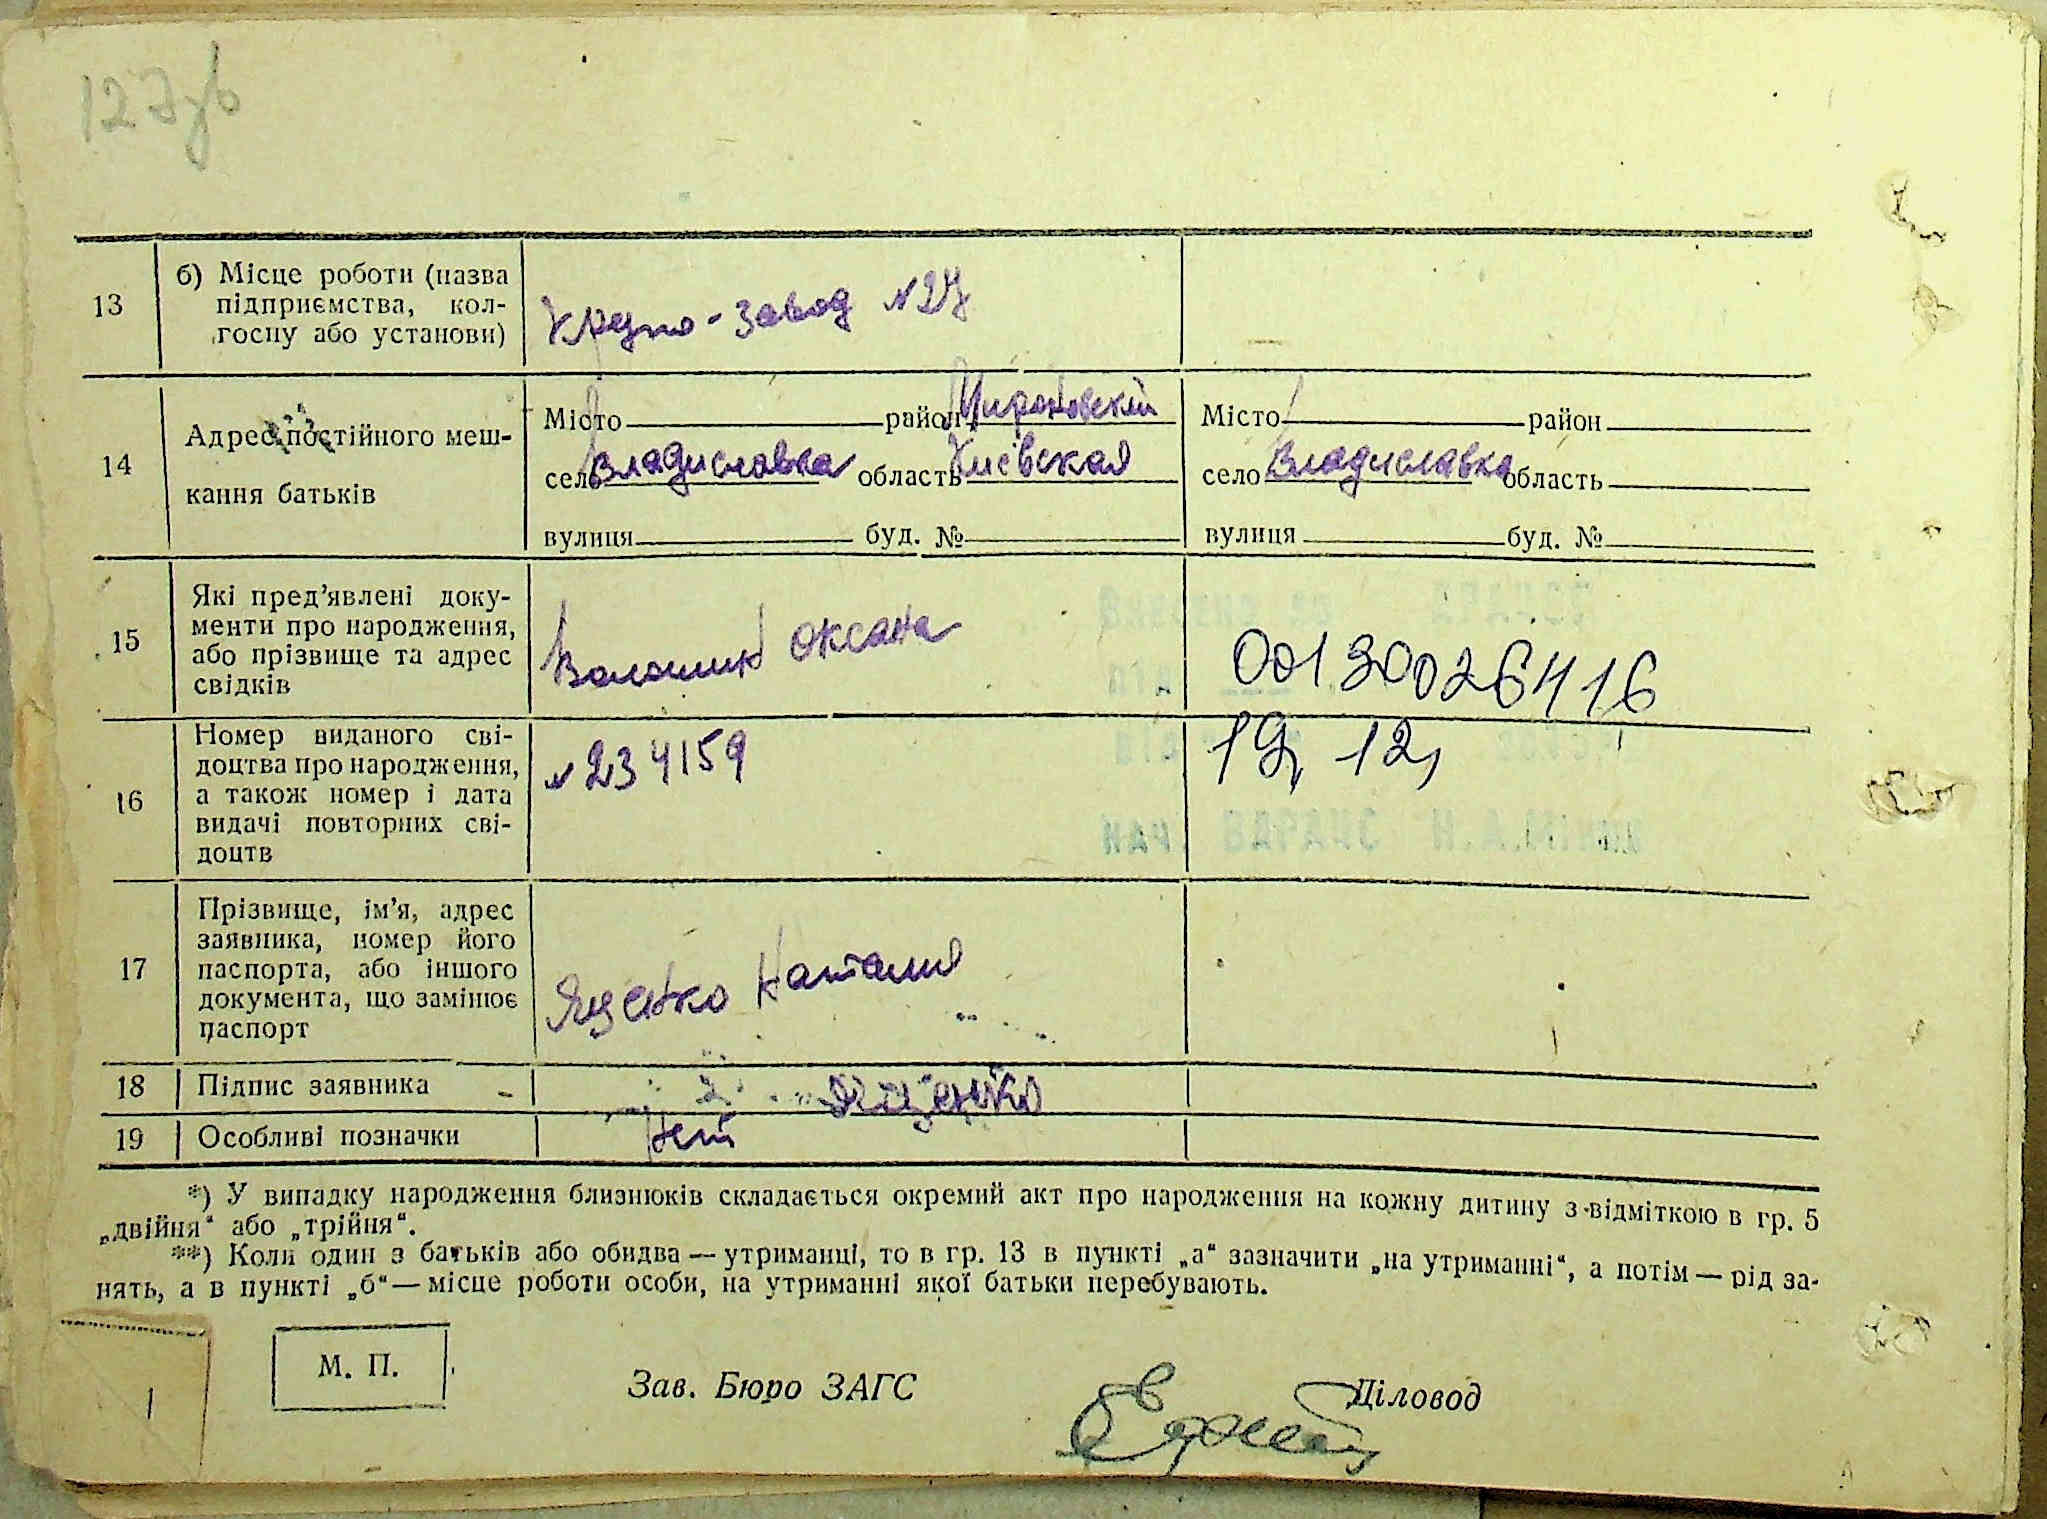 127зв
13
б) Місце роботи (назва
підприємства, кол-
госпу або установи)
завод №27
14
Адрес постійного меш-
кання батьків
Місто район Мироновский
село Владиславка область Киевская
вулиця буд. №
Місто район
село Владиславка область
вулиця буд. №
15
Які пред'явлені доку-
менти про народження,
або прізвище та адрес
свідків
Волошин Оксана
00130026416
16
Номер виданого сві-
доцтва про народження,
а також номер і дата
видачі повторних сві-
доцтв
№234159
19, 12,
НАЧ. ВДРАЦС Н.А.
17
Прізвище, ім'я, адрес
заявника, номер його
паспорта, або іншого
документа, що замінює
паспорт
Яценко Наталия
18
Підпис заявника
Яценко
19
Особливі позначки
Нет
*) У випадку народження близнюків складається окремий акт про народження на кожну дитину з відміткою в гр. 5
„двійня“ або „трійня“.
**) Коли один з батьків або обидва — утриманці, то в гр. 13 в пункті „а“ зазначити „на утриманні“, а потім — рід за-
нять, а в пункті „б“ — місце роботи особи, на утриманні якої батьки перебувають.
М. П.
Зав. Бюро ЗАГС
Діловод